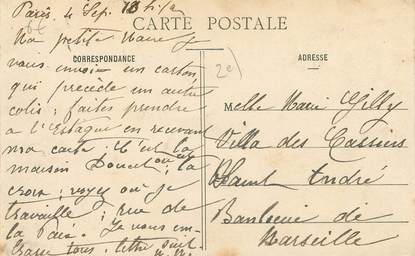 Paris, 4 Sep.
CARTE POSTALE
Ma petite Marie, je
CORRESPONDANCE
vous envoie un carton
qui précède un autre
colis; faites prendre
à l'Estaque en recevant
ma carte; C'est la
maison
croix; voyez où je
travaille; rue de
la Paix. Je vous em-
brasse tous. lettre suit
2e)
ADRESSE
Melle Marie Gilly
Villa des Cassins
Saint André
Banlieue de
Marseille